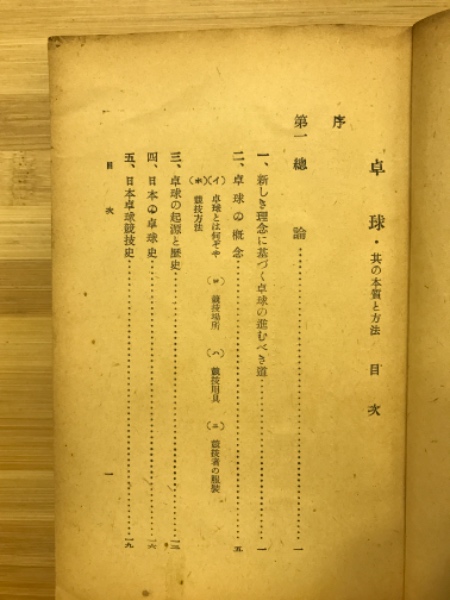 卓球・其の本質と方法 目次
序
第一 總論……一
一、新しき理念に基づく卓球の進むべき道……一
二、卓球の概念……五
(イ) 卓球とは何ぞや (ロ) 競技場所 (ハ) 競技用具 (ニ) 競技者の服裝
(ホ) 競技方法
三、卓球の起源と歴史……一三
四、日本の卓球史……一六
五、日本卓球競技史……一九
目次 一